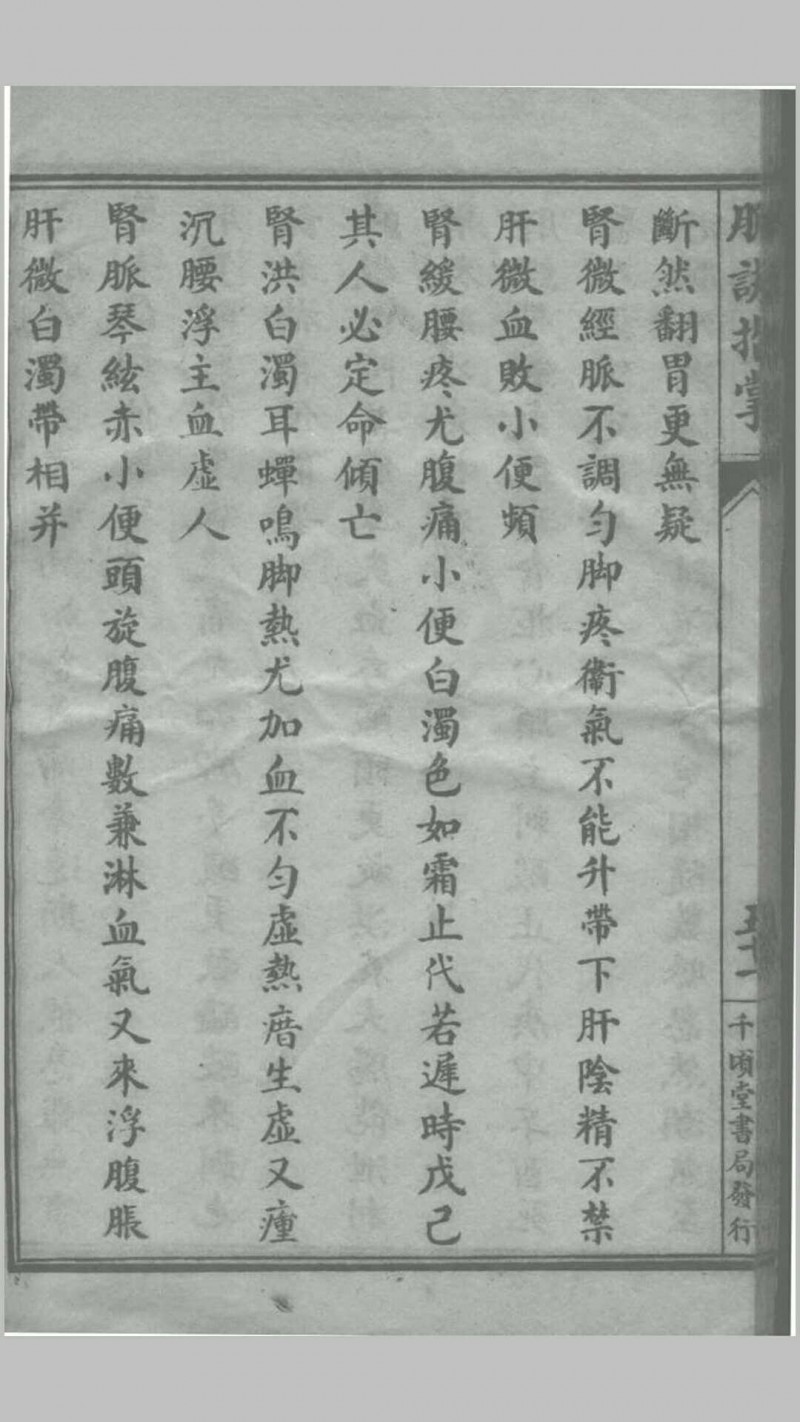 脈訣指掌
五十一
千頃堂書局發行
斷然翻胃更無疑
腎微經脈不調勻脚疼衞氣不能升帶下肝陰精不禁
肝微血敗小便頻
腎緩腰疼尤腹痛小便白濁色如霜止代若遲時戊己
其人必定命傾亡
腎洪白濁耳蟬鳴脚熱尤加血不勻虛熱瘖生虛又瘇
沉腰浮主血虛人
腎脈琴絃赤小便頭旋腹痛數兼淋血氣又來浮腹脹
肝微白濁帶相并